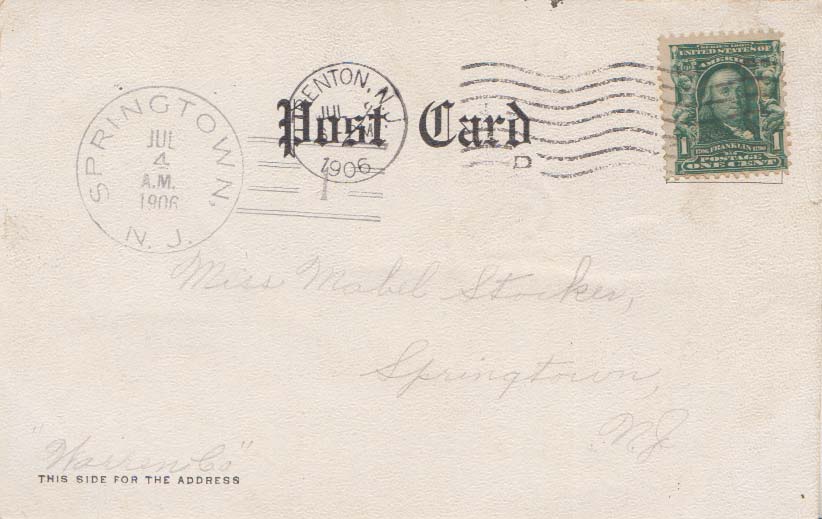 SPRINGTOWN, N. J.
JUL
4
A.M.
1906
TRENTON, N.J.
JUL
1906
1
Post Card
D
SERIES 1902
UNITED STATES OF
AMERICA
1706 FRANKLIN 1790
1 1
POSTAGE
ONE CENT
Miss Mabel Stocker,
Springtown,
N.J.
"Warren Co"
THIS SIDE FOR THE ADDRESS